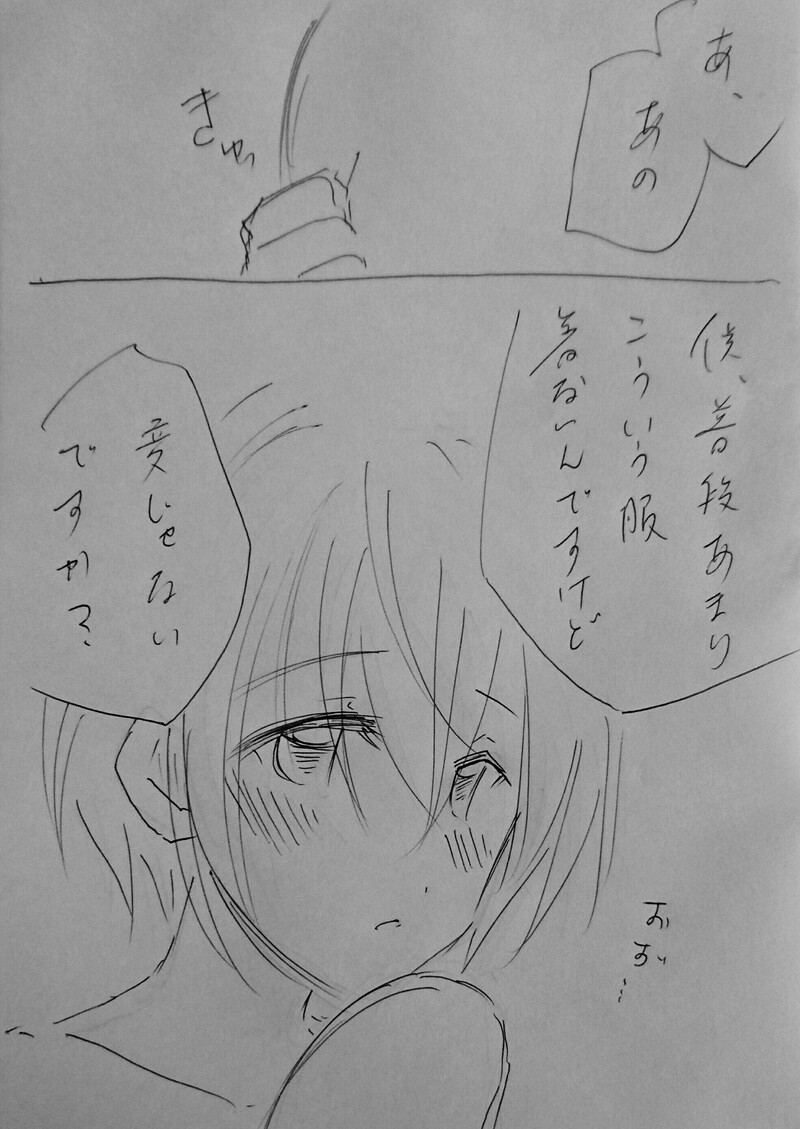 あ、
あの
きゅっ
僕、普段あまり
こういう服
着ないんですけど
変じゃない
ですか?
おず